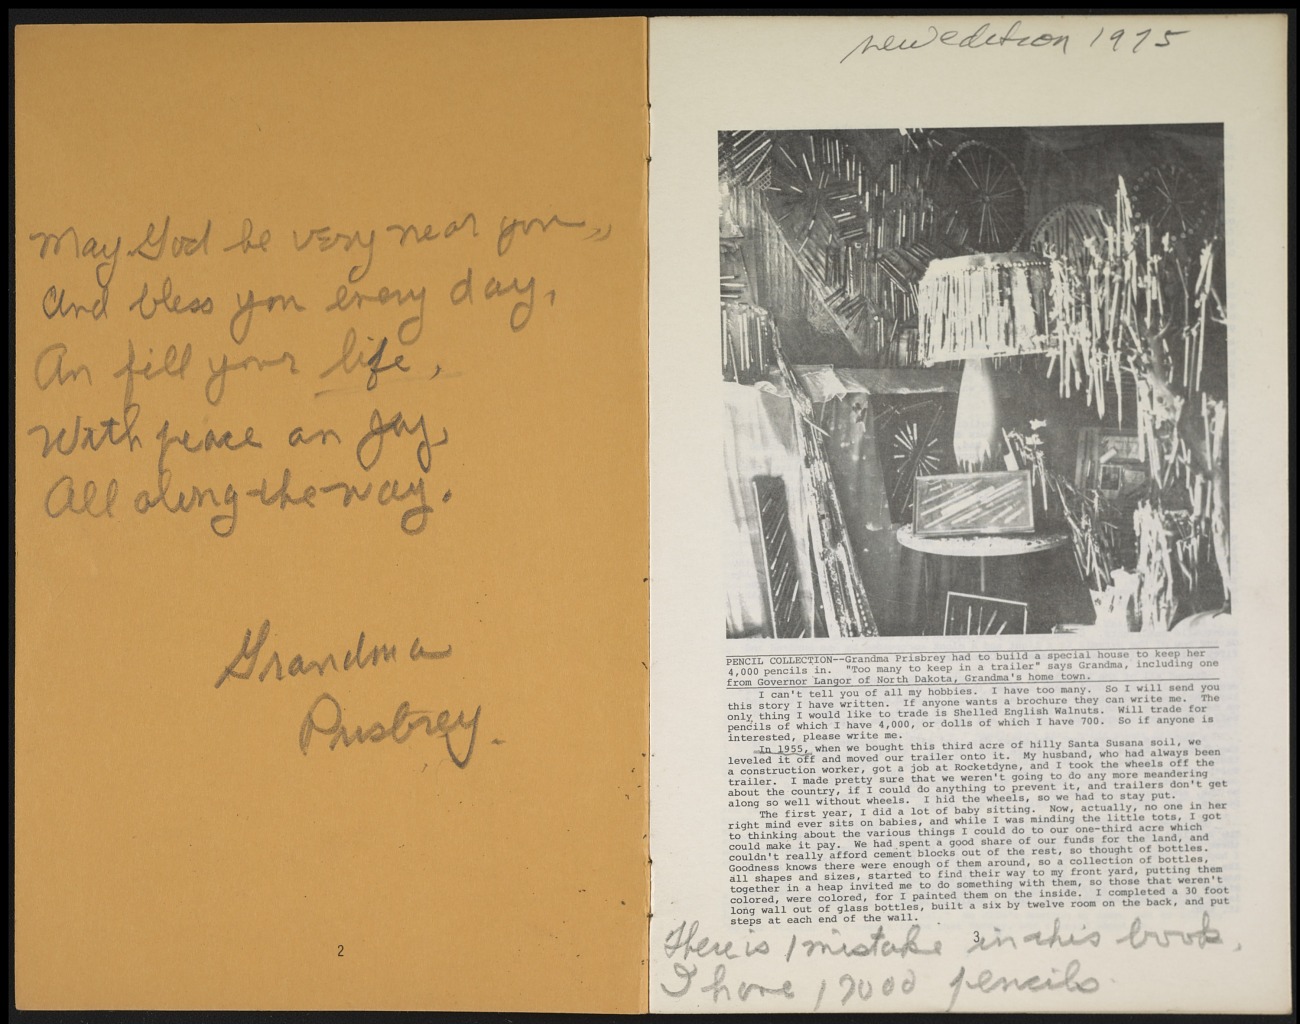 May God be very near you,,
And bless you every day,
An fill your life,
With peace an Joy,
All along-the-way.
Grandma
Prisbrey.
2
new edition 1975
PENCIL COLLECTION--Grandma Prisbrey had to build a special house to keep her
4,000 pencils in.  "Too many to keep in a trailer" says Grandma, including one
from Governor Langor of North Dakota, Grandma's home town.
I can't tell you of all my hobbies.  I have too many.  So I will send you
this story I have written.  If anyone wants a brochure they can write me.  The
only thing I would like to trade is Shelled English Walnuts.  Will trade for
pencils of which I have 4,000, or dolls of which I have 700.  So if anyone is
interested, please write me.
In 1955, when we bought this third acre of hilly Santa Susana soil, we
leveled it off and moved our trailer onto it.  My husband, who had always been
a construction worker, got a job at Rocketdyne, and I took the wheels off the
trailer.  I made pretty sure that we weren't going to do any more meandering
about the country, if I could do anything to prevent it, and trailers don't get
along so well without wheels.  I hid the wheels, so we had to stay put.
The first year, I did a lot of baby sitting.  Now, actually, no one in her
right mind ever sits on babies, and while I was minding the little tots, I got
to thinking about the various things I could do to our one-third acre which
could make it pay.  We had spent a good share of our funds for the land, and
couldn't really afford cement blocks out of the rest, so thought of bottles.
Goodness knows there were enough of them around, so a collection of bottles,
all shapes and sizes, started to find their way to my front yard, putting them
together in a heap invited me to do something with them, so those that weren't
colored, were colored, for I painted them on the inside.  I completed a 30 foot
long wall out of glass bottles, built a six by twelve room on the back, and put
steps at each end of the wall.
3
There is 1 mistake in this book,
I have 17000 pencils.